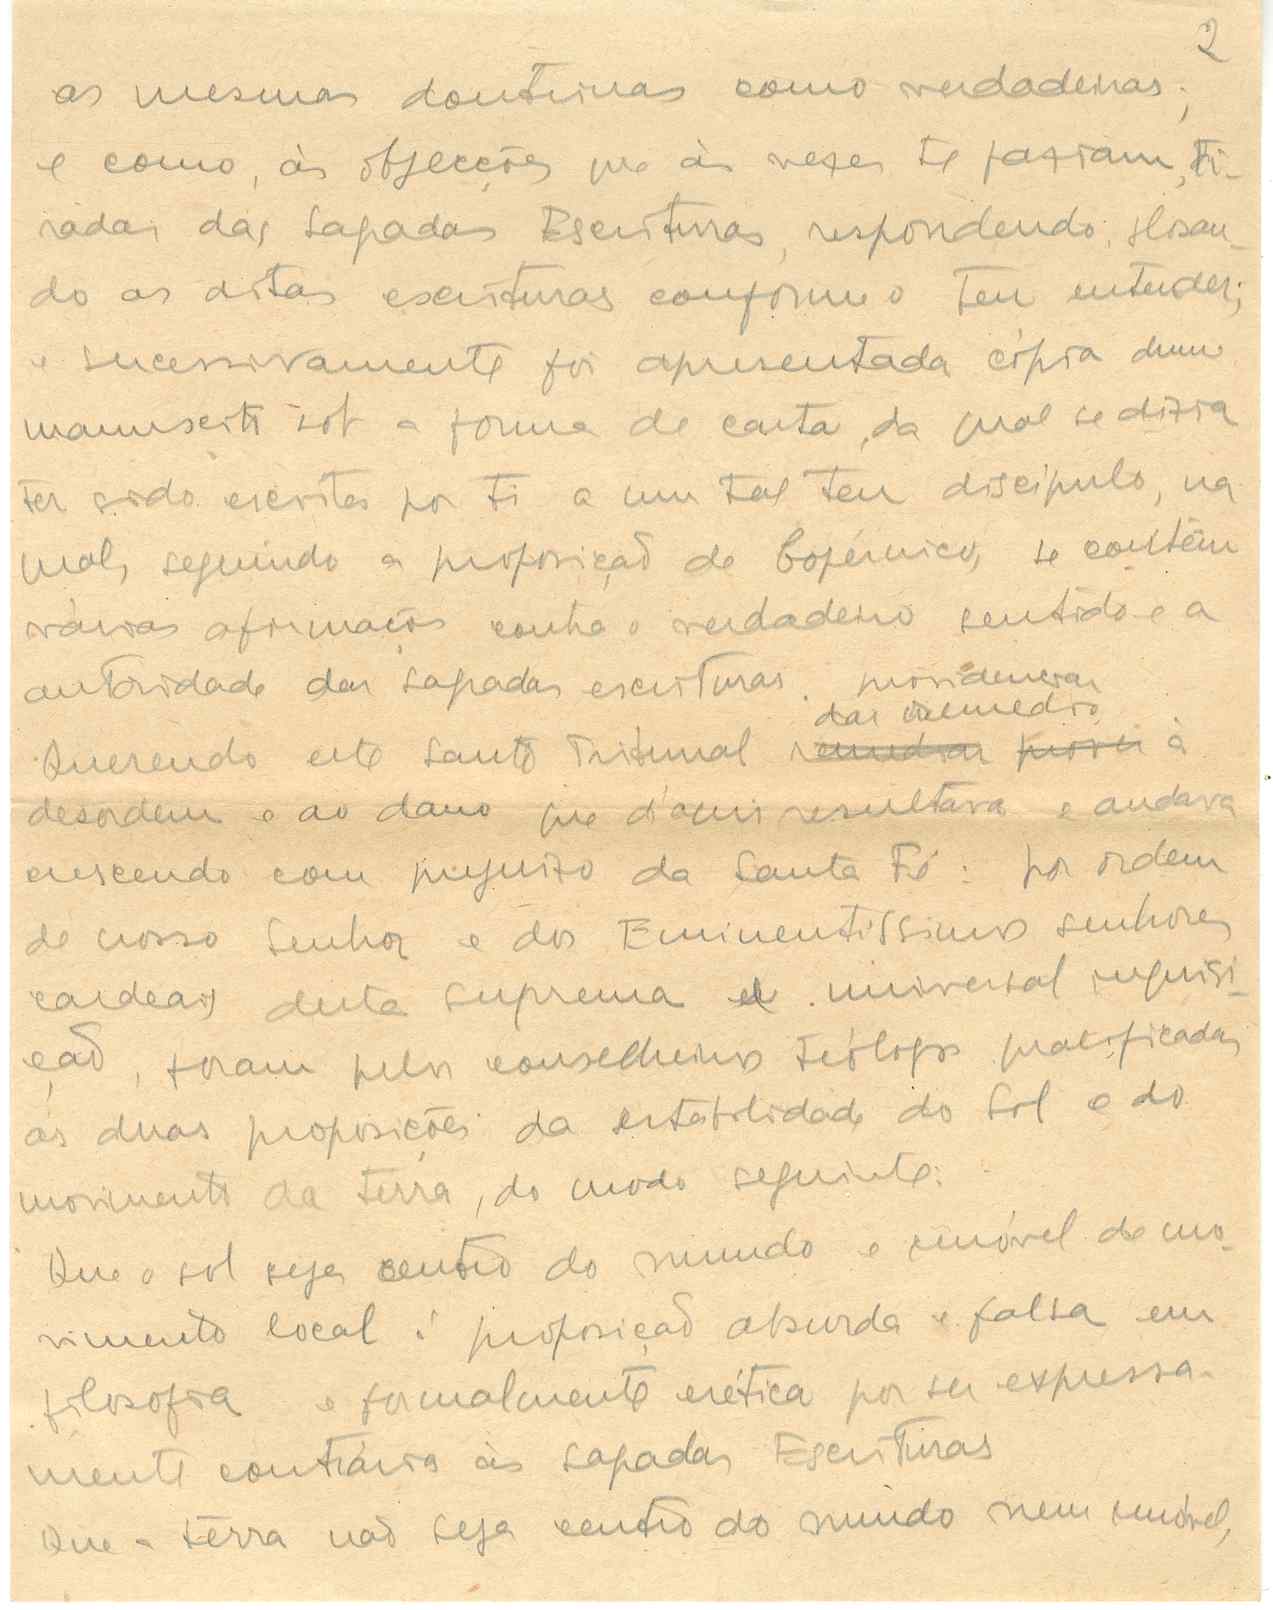 2
as mesmas doutrinas como verdadeiras;
e como, às objecções que às vezes te faziam, ti-
radas das Sagradas Escrituras, respondendo, glosan-
do as ditas escrituras conforme o teu entender;
e sucessivamente foi apresentada cópia dum
manuscrito sob a forma de carta, da qual se dizia
ter sido escrita por ti a um tal teu discípulo, na
qual, seguindo a proposição de Copérnico, se contêm
várias afirmações contra o verdadeiro sentido e a
autoridade das sagradas escrituras.
providenciar
dar remédio
Querendo este Santo Tribunal remediar prover à
desordem e ao dano que d'aqui resultava e andava
crescendo com prejuizo da Santa Fé: por ordem
de nosso Senhor e dos Eminentíssimos senhores
cardeais desta suprema e universal inquisi-
ção, foram pelos conselheiros teólogos qualificadas
as duas proposições da estabilidade do Sol e do
movimento da terra, do modo seguinte:
Que o sol seja centro do mundo e imóvel de mo-
vimento local é proposição absurda e falsa em
filosofia e formalmente erética por ser expressa-
mente contrária às Sagradas Escrituras
Que a terra não seja centro do mundo nem imóvel,